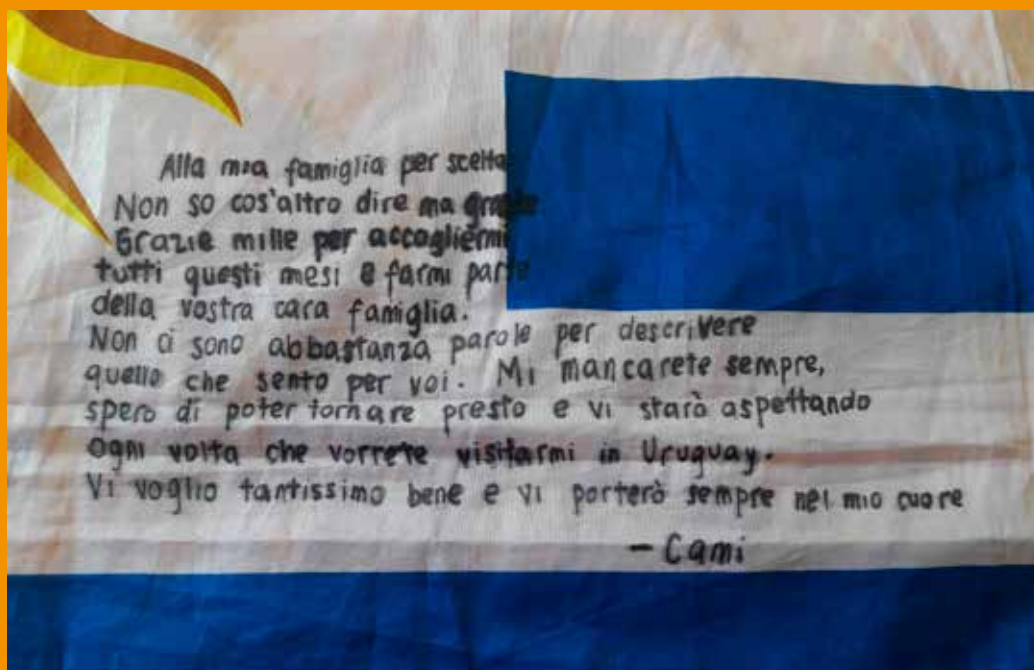 Alla mia famiglia per scelta
Non so cos'altro dire ma grazie
Grazie mille per accogliermi
tutti questi mesi e farmi parte
della vostra cara famiglia.
Non ci sono abbastanza parole per descrivere
quello che sento per voi. Mi mancarete sempre,
spero di poter tornare presto e vi starò aspettando
ogni volta che vorrete visitarmi in Uruguay.
Vi voglio tantissimo bene e vi porterò sempre nel mio cuore
- Cami